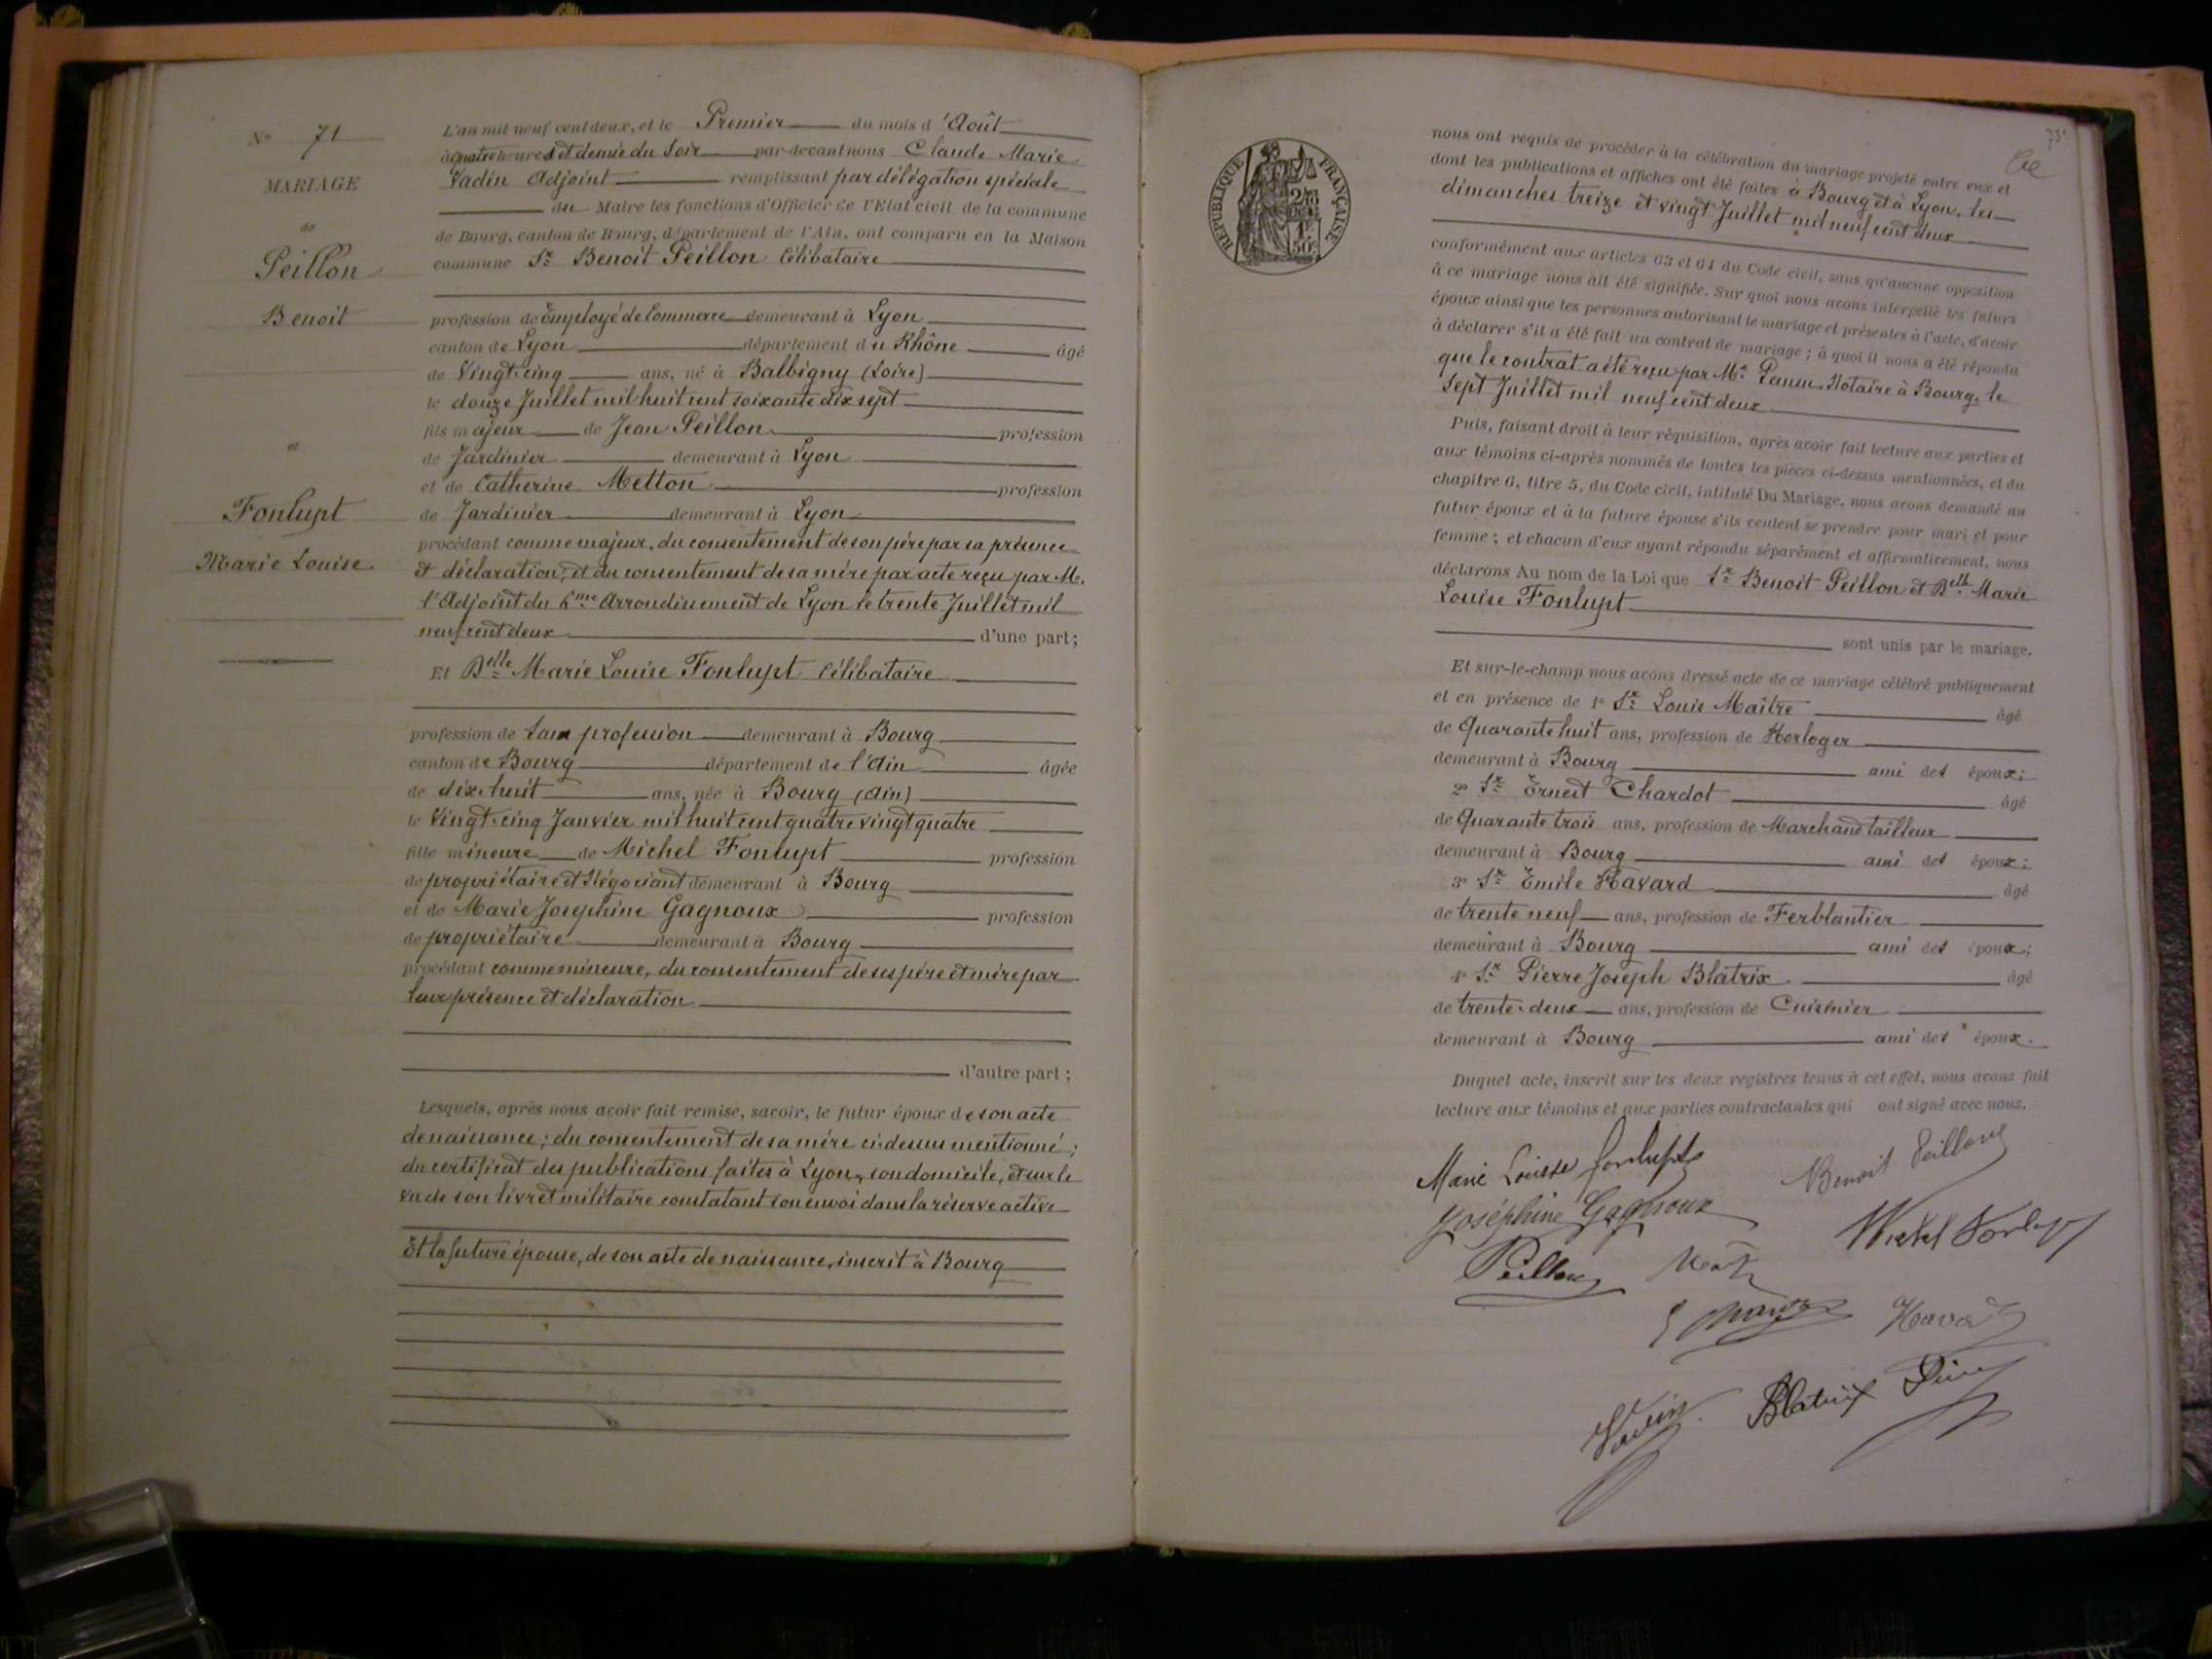 N° 71
MARIAGE
de
Peillon
Benoit
et
Fonlupt
Marie Louise
L'an mil neuf cent deux, et le Premier du mois d'Août
à quatre heures et demie du Soir par-devant nous Claude Marie
Vadin Adjoint remplissant par délégation spéciale
du Maire les fonctions d'Officier de l'Etat civil de la commune
de Bourg, canton de Bourg, département de l'Ain, ont comparu en la Maison
commune Sr Benoit Peillon Célibataire
profession de Employé de Commerce demeurant à Lyon
canton de Lyon département du Rhône âgé
de Vingt-cinq ans, né à Balbigny (Loire)
le douze Juillet mil huit cent soixante dix sept
fils majeur de Jean Peillon profession
de Jardinier demeurant à Lyon
et de Catherine Metton profession
de Jardinier demeurant à Lyon
procédant comme majeur, du consentement de son père par sa présence
et déclaration, et du consentement de sa mère par acte reçu par M.
l'Adjoint du 6me Arrondissement de Lyon le trente Juillet mil
neuf cent deux d'une part;
Et Delle Marie Louise Fonlupt Célibataire
profession de sans profession demeurant à Bourg
canton de Bourg département de l'Ain âgée
de dix-huit ans, née à Bourg (Ain)
le Vingt-cinq Janvier mil huit cent quatre vingt quatre
fille mineure de Michel Fonlupt profession
de propriétaire et Négociant demeurant à Bourg
et de Marie Josephine Gagnoux profession
de propriétaire demeurant à Bourg
procédant comme mineure, du consentement de ses père et mère par
leur présence et déclaration
d'autre part;
Lesquels, après nous avoir fait remise, savoir, le futur époux de son acte
de naissance; du consentement de sa mère ci-dessus mentionné;
du certificat des publications faites à Lyon, son domicile, et sur le
vu de son livret militaire constatant son envoi dans la réserve active
Et la future épouse, de son acte de naissance, inscrit à Bourg
REPUBLIQUE FRANÇAISE
nous ont requis de procéder à la célébration du mariage projeté entre eux et
dont les publications et affiches ont été faites à Bourg et à Lyon, les
dimanches treize et vingt Juillet mil neuf cent deux
conformément aux articles 63 et 64 du Code civil, sans qu'aucune opposition
à ce mariage nous ait été signifiée. Sur quoi nous avons interpellé les futurs
époux ainsi que les personnes autorisant le mariage et présentes à l'acte, d'avoir
à déclarer s'il a été fait un contrat de mariage; à quoi il nous a été répondu
que le contrat a été reçu par Me Notaire à Bourg, le
sept Juillet mil neuf cent deux
Puis, faisant droit à leur réquisition, après avoir fait lecture aux parties et
aux témoins ci-après nommés de toutes les pièces ci-dessus mentionnées, et du
chapitre 6, titre 5, du Code civil, intitulé Du Mariage, nous avons demandé au
futur époux et à la future épouse s'ils veulent se prendre pour mari et pour
femme; et chacun d'eux ayant répondu séparément et affirmativement, nous
déclarons Au nom de la Loi que Sr Benoit Peillon et Delle Marie
Louise Fonlupt
sont unis par le mariage.
Et sur-le-champ nous avons dressé acte de ce mariage célébré publiquement
et en présence de 1° Sr Louis Maître âgé
de Quarante huit ans, profession de Horloger
demeurant à Bourg ami des époux;
2° Sr Ernest Chardot âgé
de Quarante trois ans, profession de Marchand tailleur
demeurant à Bourg ami des époux;
3° Sr Emile Havard âgé
de trente neuf ans, profession de Ferblantier
demeurant à Bourg ami des époux;
4° Sr Pierre Joseph Blatrix âgé
de trente-deux ans, profession de Cuisinier
demeurant à Bourg ami des époux.
Duquel acte, inscrit sur les deux registres tenus à cet effet, nous avons fait
lecture aux témoins et aux parties contractantes qui ont signé avec nous.
Marie Louise fonlupt Benoit Peillon
Joséphine Gagnoux Michel Fonlupt
Peillon
Havard
Vadin Blatrix Pierre